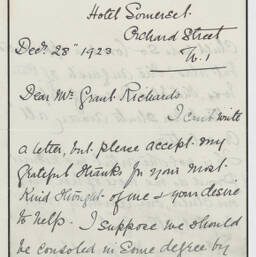 Hotel Somerset.
Orchard Street
W. 1
Decr. 28" 1923
Dear Mr. Grant Richards
I can't write
a letter, but please accept my
grateful thanks for your most
kind thought of me & your desire
to help. I suppose we should
be consoled in some degree by